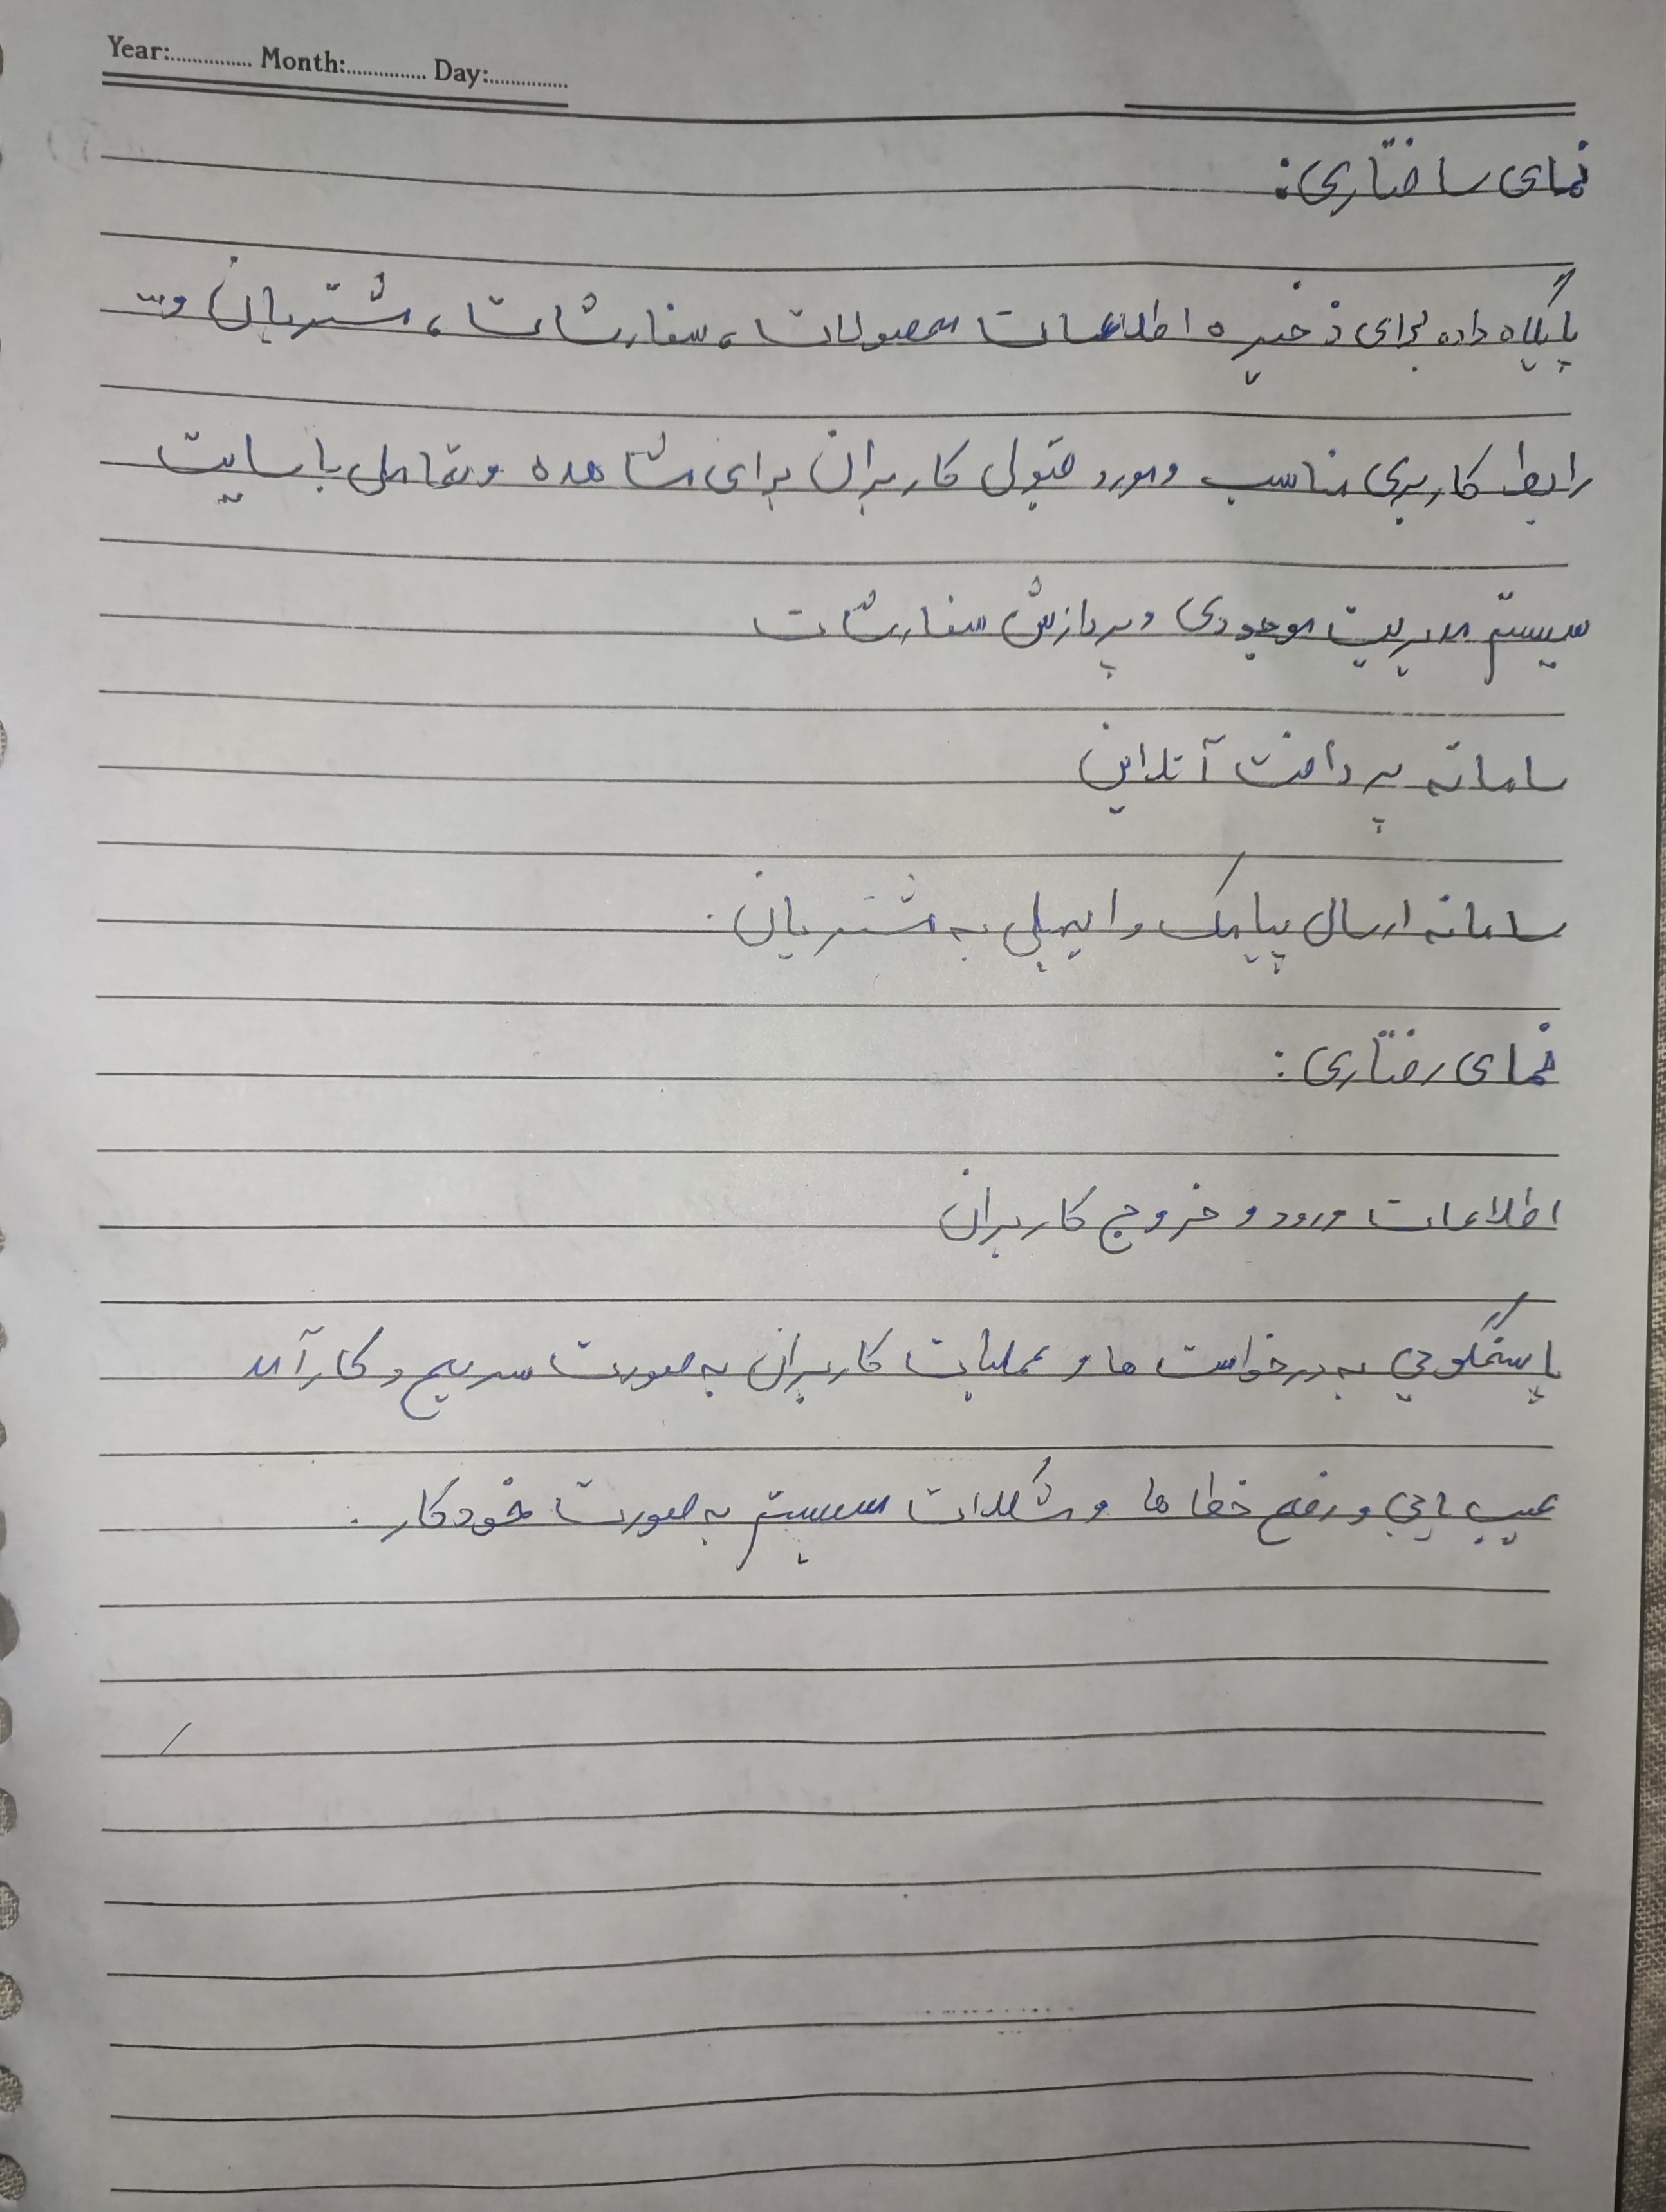 Year:............... Month:............... Day:...............
نمای ساختاری:
پایگاه داده برای ذخیره اطلاعات محصولات، سفارشات، مشتریان و...
رابط کاربری مناسب و مورد قبول کاربران برای مشاهده و تعامل با سایت
سیستم مدیریت موجودی و پردازش سفارشات
سامانه پرداخت آنلاین
سامانه ارسال پیامک و ایمیل به مشتریان.
نمای رفتاری:
اطلاعات ورود و خروج کاربران
پاسخگویی به درخواست ها و عملیات کاربران به صورت سریع و کارآمد
عیب یابی و رفع خطا ها و مشکلات سیستم به صورت خودکار.